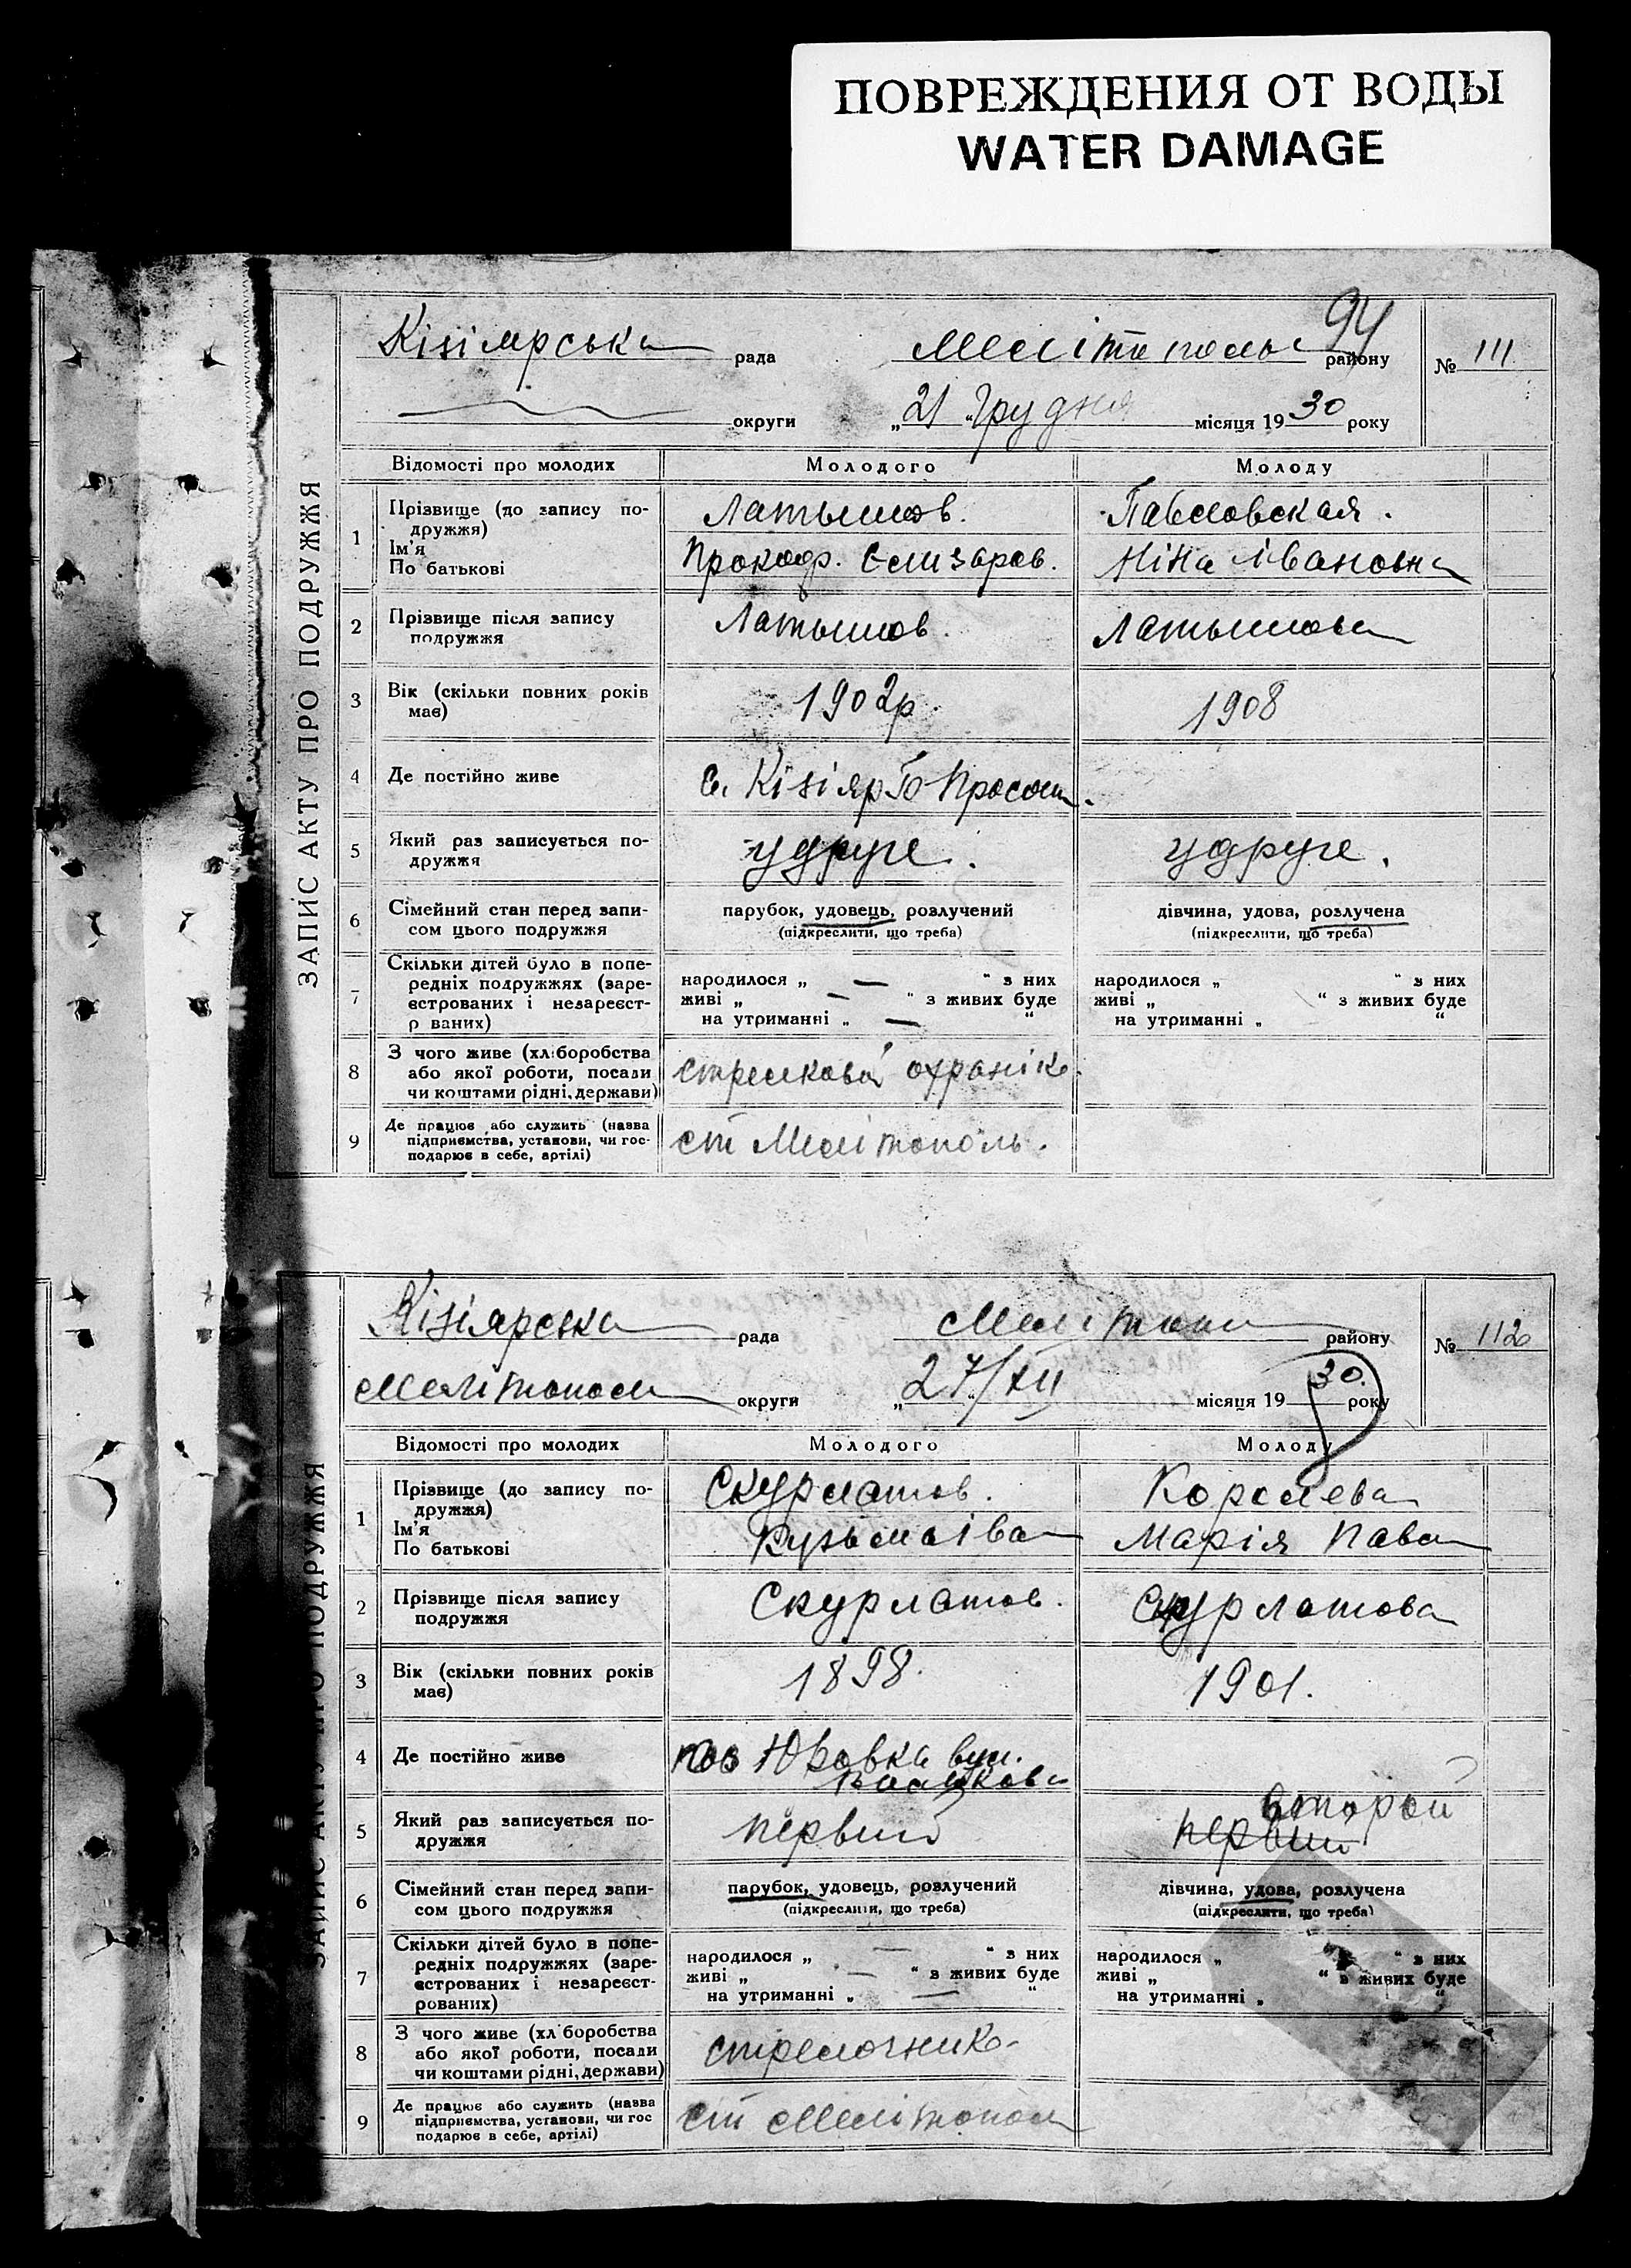 ПОВРЕЖДЕНИЯ ОТ ВОДЫ
WATER DAMAGE
94
ЗАПИС АКТУ ПРО ПОДРУЖЖЯ
Кізіярська рада Мелітополь району № 111
округи „21 "Грудня місяця 1930 року
Відомості про молодих Молодого Молоду
1 Прізвище (до запису по-
дружжя)
Ім'я
По батькові
Латышов. Павловская.
Прокоф. Елизаров. Ніна Івановна
2 Прізвище після запису
подружжя
Латышов. Латышова
3 Вік (скільки повних років
має)
1902р. 1908
4 Де постійно живе
с. Кізіяр
5 Який раз записується по-
дружжя
удруге. удруге.
6 Сімейний стан перед запи-
сом цього подружжя
парубок, удовець, розлучений дівчина, удова, розлучена
(підкреслити, що треба) (підкреслити, що треба)
7 Скільки дітей було в попе-
редніх подружжях (заре-
єстрованих і незареєст-
р ваних)
народилося „ — " з них народилося „ " з них
живі „ — " з живих буде живі „ " з живих буде
на утриманні „ — " на утриманні „ "
8 З чого живе (хліборобства
або якої роботи, посади
чи коштами рідні, держави)
охранік.
9 Де працює або служить (назва
підприємства, установи, чи гос-
подарює в себе, артілі)
ст Мелітополь.
ЗАПИС АКТУ ПРО ПОДРУЖЖЯ
Кізіярська рада Меліτοπ району № 112
Мелітопол округи „27/XII місяця 1930. року
Відомості про молодих Молодого Молоду
1 Прізвище (до запису по-
дружжя)
Ім'я
По батькові
Скурлатов. Королева
Кузьма Іва Марія Пава
2 Прізвище після запису
подружжя
Скурлатов. Скурлатова
3 Вік (скільки повних років
має)
1898. 1901.
4 Де постійно живе
пос Юровка вул.
5 Який раз записується по-
дружжя
второй
первий первий
6 Сімейний стан перед запи-
сом цього подружжя
парубок, удовець, розлучений дівчина, удова, розлучена
(підкреслити, що треба) (підкреслити, що треба)
7 Скільки дітей було в попе-
редніх подружжях (заре-
єстрованих і незареєст-
рованих)
народилося „ — " з них народилося „ " з них
живі „ — " з живих буде живі „ " з живих буде
на утриманні „ — " на утриманні „ "
8 З чого живе (хл боробства
або якої роботи, посади
чи коштами рідні, держави)
стрелочник
9 Де працює або служить (назва
підприємства, установи, чи гос
подарює в себе, артілі)
ст Мелітопол